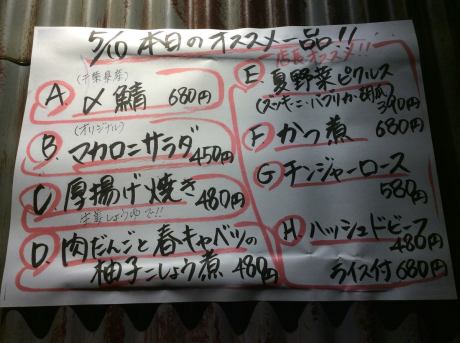 5/10 本日のオススメ一品!!
(千葉県産)
A. 〆鯖 680円
(オリジナル)
B. マカロニサラダ 450円
C. 厚揚げ焼き 480円
生姜しょうゆで!!
D. 肉だんごと春キャベツの
柚子こしょう煮 480円
店長オススメ!!
E. 夏野菜ピクルス
(ズッキーニ・パプリカ・胡瓜) 390円
F. かつ煮 680円
G. チンジャーロース
580円
H. ハッシュドビーフ
480円
ライス付 680円